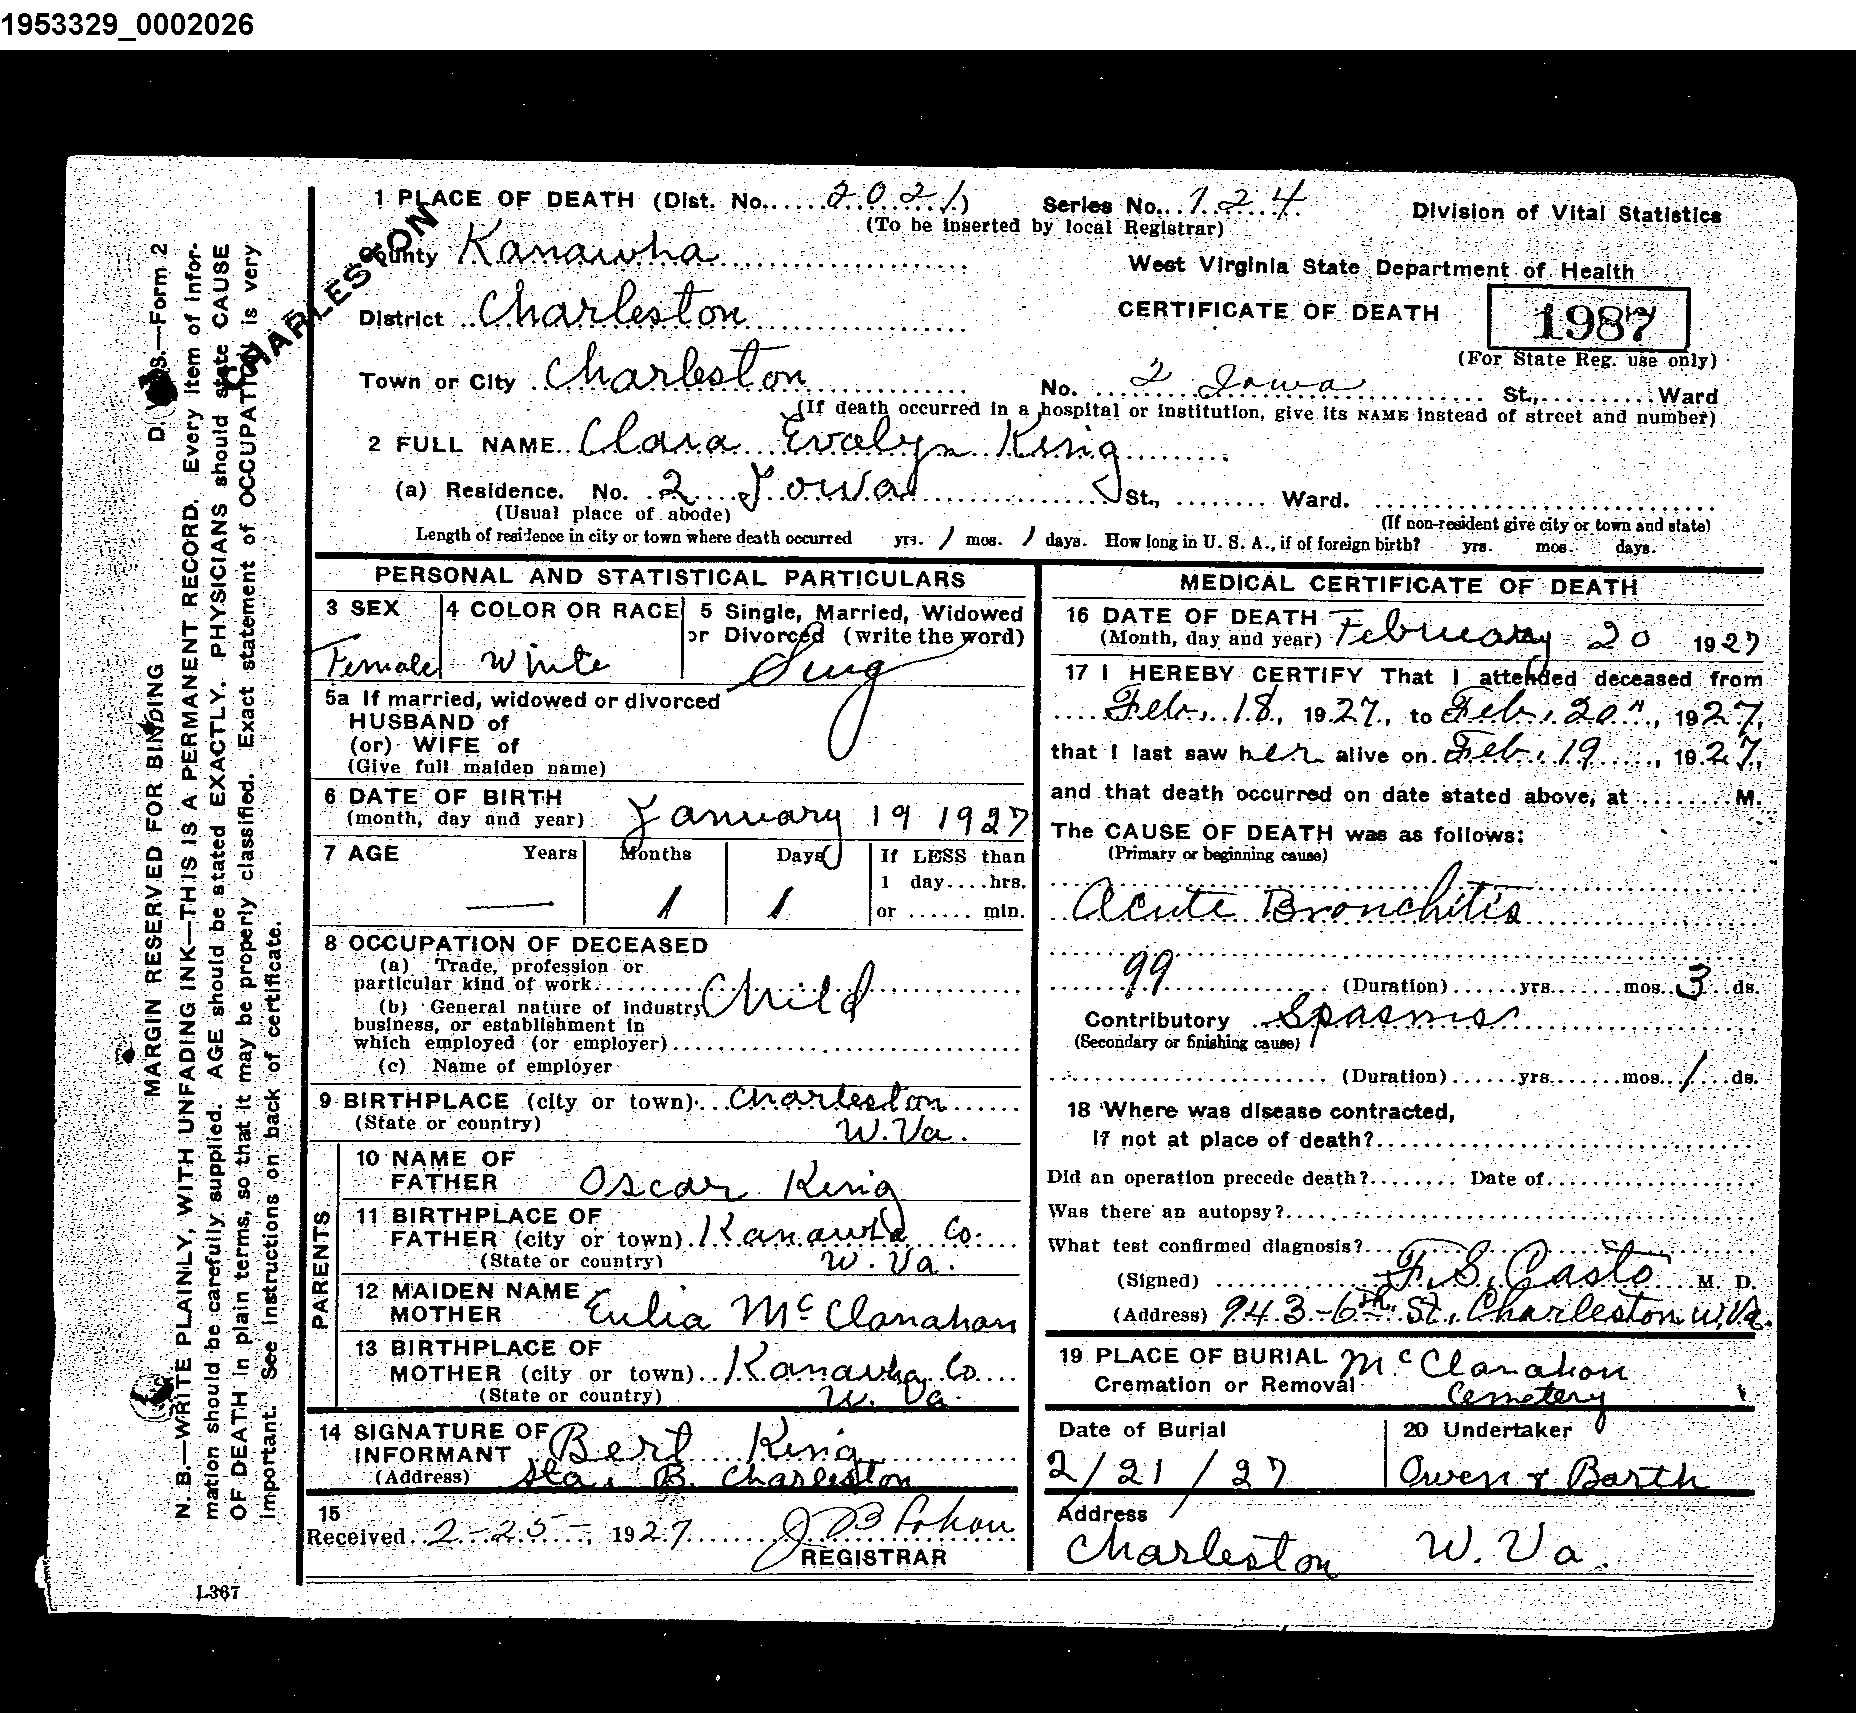 1953329_0002026
1 PLACE OF DEATH (Dist. No. 2021)
Series No. 124
(To be inserted by local Registrar)
Division of Vital Statistics
CHARLESTON
County Kanawha
West Virginia State Department of Health
District Charleston
CERTIFICATE OF DEATH
1987
(For State Reg. use only)
Town or City Charleston
No. 2 Iowa St., Ward
(If death occurred in a hospital or institution, give its NAME instead of street and number)
2 FULL NAME Clara Evalyn King
(a) Residence. No. 2 Iowa St., Ward.
(Usual place of abode)
(If non-resident give city or town and state)
Length of residence in city or town where death occurred yrs. 1 mos. 1 days. How long in U. S. A., if of foreign birth? yrs. mos. days.
PERSONAL AND STATISTICAL PARTICULARS
3 SEX
Female
4 COLOR OR RACE
White
5 Single, Married, Widowed
or Divorced (write the word)
Sing
5a If married, widowed or divorced
HUSBAND of
(or) WIFE of
(Give full maiden name)
6 DATE OF BIRTH
(month, day and year) January 19 1927
7 AGE Years Months Days If LESS than
1 day....hrs.
— 1 1 or ...... min.
8 OCCUPATION OF DECEASED
(a) Trade, profession or
particular kind of work
(b) General nature of industry
business, or establishment in
which employed (or employer)
(c) Name of employer
Child
9 BIRTHPLACE (city or town) Charleston
(State or country) W. Va.
PARENTS
10 NAME OF
FATHER Oscar King
11 BIRTHPLACE OF
FATHER (city or town) Kanawha Co.
(State or country) W. Va.
12 MAIDEN NAME
MOTHER Eulia McClanahan
13 BIRTHPLACE OF
MOTHER (city or town) Kanawha Co.
(State or country) W. Va.
14 SIGNATURE OF
INFORMANT Bert King
(Address) Sta. B. Charleston
15
Received 2-25-, 1927
REGISTRAR
MEDICAL CERTIFICATE OF DEATH
16 DATE OF DEATH
(Month, day and year) February 20 1927
17 I HEREBY CERTIFY That I attended deceased from
Feb. 18, 1927, to Feb. 20", 1927,
that I last saw her alive on Feb. 19, 1927,
and that death occurred on date stated above, at ........ M.
The CAUSE OF DEATH was as follows:
(Primary or beginning cause)
Acute Bronchitis
99
(Duration) yrs. mos. 3 ds.
Contributory Spasms
(Secondary or finishing cause)
(Duration) yrs. mos. 1 ds.
18 Where was disease contracted,
If not at place of death?
Did an operation precede death? Date of
Was there an autopsy?
What test confirmed diagnosis?
(Signed) F. S. Casto M. D.
(Address) 943-6th St., Charleston W. Va.
19 PLACE OF BURIAL McClanahan
Cremation or Removal Cemetery
Date of Burial
2/21/27
20 Undertaker
Owen & Barth
Address
Charleston W. Va.
D. V. S.—Form 2
MARGIN RESERVED FOR BINDING
N. B.—WRITE PLAINLY, WITH UNFADING INK—THIS IS A PERMANENT RECORD. Every item of infor-
mation should be carefully supplied. AGE should be stated EXACTLY. PHYSICIANS should state CAUSE
OF DEATH in plain terms, so that it may be properly classified. Exact statement of OCCUPATION is very
important. See instructions on back of certificate.
L367